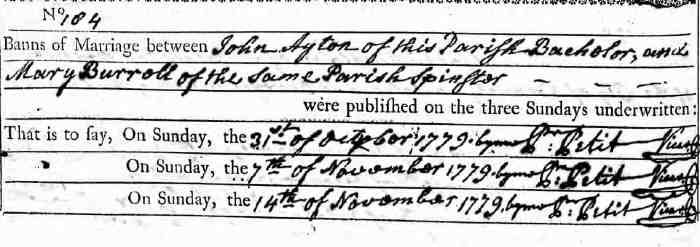 No. 184
Banns of Marriage between John Ayton of this Parish Bachelor, and
Mary Burroll of the Same Parish Spinster — — —
were publiſhed on the three Sundays underwritten:
That is to ſay, On Sunday, the 31st of October 1779. by me Pr. Petit Vicar
On Sunday, the 7th of November 1779. by me Pr. Petit Vicar
On Sunday, the 14th of November 1779. by me Pr. Petit Vicar